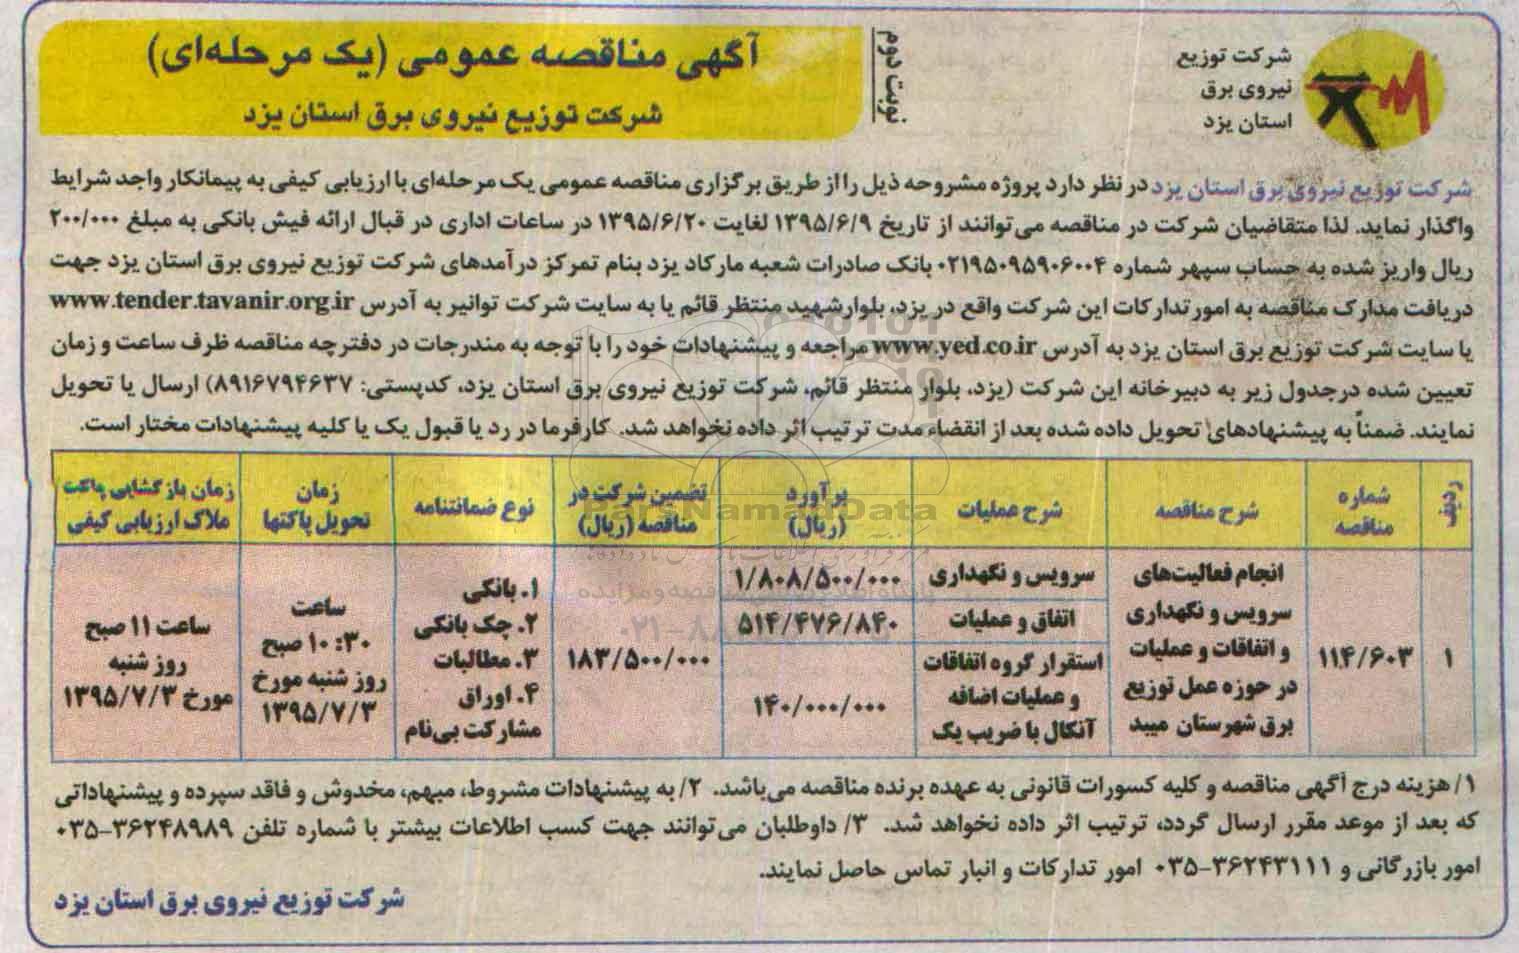 شرکت توزیع
نیروی برق
استان یزد
نوبت دوم
آگهی مناقصه عمومی (یک مرحله‌ای)
شرکت توزیع نیروی برق استان یزد
شرکت توزیع نیروی برق استان یزد در نظر دارد پروژه مشروحه ذیل را از طریق برگزاری مناقصه عمومی یک مرحله‌ای با ارزیابی کیفی به پیمانکار واجد شرایط
واگذار نماید. لذا متقاضیان شرکت در مناقصه می‌توانند از تاریخ ۱۳۹۵/۶/۹ لغایت ۱۳۹۵/۶/۲۰ در ساعات اداری در قبال ارائه فیش بانکی به مبلغ ۲۰۰/۰۰۰
ریال واریز شده به حساب سپهر شماره ۰۲۱۹۵۰۹۵۹۰۶۰۰۴ بانک صادرات شعبه مارکاد یزد بنام تمرکز درآمدهای شرکت توزیع نیروی برق استان یزد جهت
دریافت مدارک مناقصه به امور تدارکات این شرکت واقع در یزد، بلوارشهید منتظر قائم یا به سایت شرکت توانیر به آدرس www.tender.tavanir.org.ir
یا سایت شرکت توزیع برق استان یزد به آدرس www.yed.co.ir مراجعه و پیشنهادات خود را با توجه به مندرجات در دفترچه مناقصه ظرف ساعت و زمان
تعیین شده درجدول زیر به دبیرخانه این شرکت (یزد، بلوار منتظر قائم، شرکت توزیع نیروی برق استان یزد، کدپستی: ۸۹۱۶۷۹۴۶۳۷) ارسال یا تحویل
نمایند. ضمناً به پیشنهادهای تحویل داده شده بعد از انقضاء مدت ترتیب اثر داده نخواهد شد. کارفرما در رد یا قبول یک یا کلیه پیشنهادات مختار است.
ردیف
شماره مناقصه
شرح مناقصه
شرح عملیات
برآورد (ریال)
تضمین شرکت در مناقصه (ریال)
نوع ضمانتنامه
زمان تحویل پاکتها
زمان بازگشایی پاکت ملاک ارزیابی کیفی
۱
۱۱۴/۶۰۳
انجام فعالیت‌های
سرویس و نگهداری
و اتفاقات و عملیات
در حوزه عمل توزیع
برق شهرستان میبد
سرویس و نگهداری
۱/۸۰۸/۵۰۰/۰۰۰
اتفاق و عملیات
۵۱۴/۴۷۶/۸۴۰
استقرار گروه اتفاقات
و عملیات اضافه
آنکال با ضریب یک
۱۴۰/۰۰۰/۰۰۰
۱۸۳/۵۰۰/۰۰۰
۱. بانکی
۲. چک بانکی
۳. مطالبات
۴. اوراق
مشارکت بی‌نام
ساعت
۱۰:۳۰ صبح
روز شنبه مورخ
۱۳۹۵/۷/۳
ساعت ۱۱ صبح
روز شنبه
مورخ ۱۳۹۵/۷/۳
ParsNamadData
۱/ هزینه درج آگهی مناقصه و کلیه کسورات قانونی به عهده برنده مناقصه می‌باشد. ۲/ به پیشنهادات مشروط، مبهم، مخدوش و فاقد سپرده و پیشنهاداتی
که بعد از موعد مقرر ارسال گردد، ترتیب اثر داده نخواهد شد. ۳/ داوطلبان می‌توانند جهت کسب اطلاعات بیشتر با شماره تلفن ۳۶۲۴۸۹۸۹-۰۳۵
امور بازرگانی و ۳۶۲۴۳۱۱۱-۰۳۵ امور تدارکات و انبار تماس حاصل نمایند.
شرکت توزیع نیروی برق استان یزد